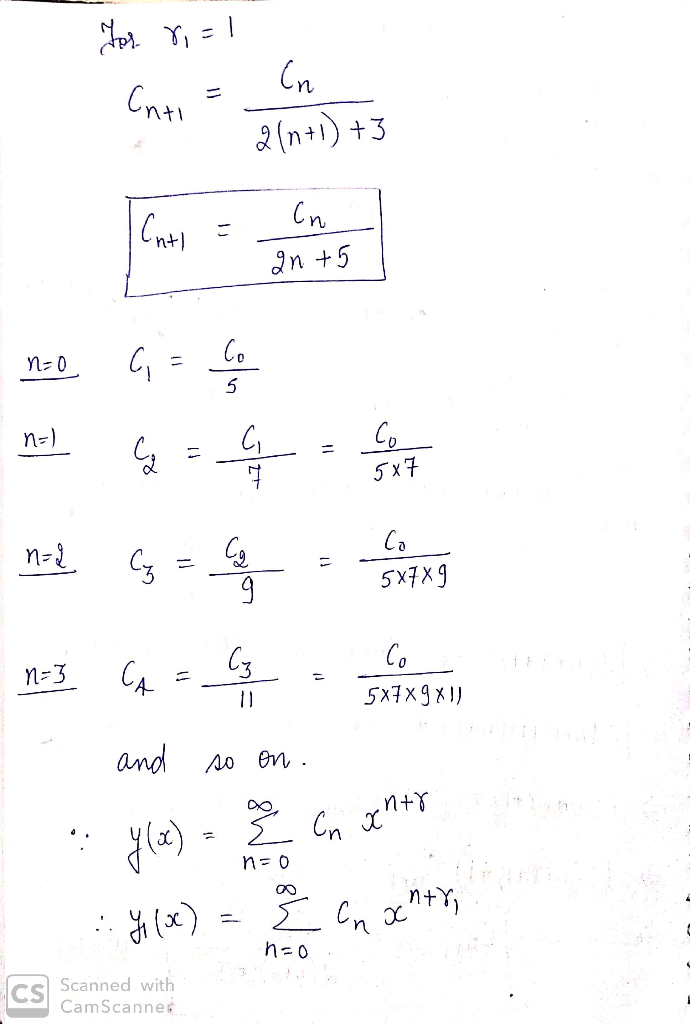 For r₁ = 1
Cₙ₊₁ = Cₙ / 2(n+1) + 3
Cₙ₊₁ = Cₙ / 2n + 5
n=0 C₁ = C₀ / 5
n=1 C₂ = C₁ / 7 = C₀ / 5×7
n=2 C₃ = C₂ / 9 = C₀ / 5×7×9
n=3 C₄ = C₃ / 11 = C₀ / 5×7×9×11
and so on.
∵ y(x) = ∑_{n=0}^{∞} Cₙ x^{n+r}
∴ y₁(x) = ∑_{n=0}^{∞} Cₙ x^{n+r₁}
CS Scanned with
CamScanner